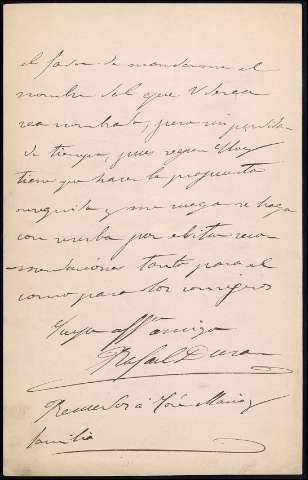 el favor de mandarme el
nombre del que V desea
sea nombrado, pero sin perdida
de tiempo, pues segun
tiene que hacer la propuesta
enseguida y me ruega se haga
con reserba por ebitar reco-
mendaciones tanto para el
como para los consigeros
Suyo affmo amigo
Rafael Duran
Recuerdos á José Maria y
familia